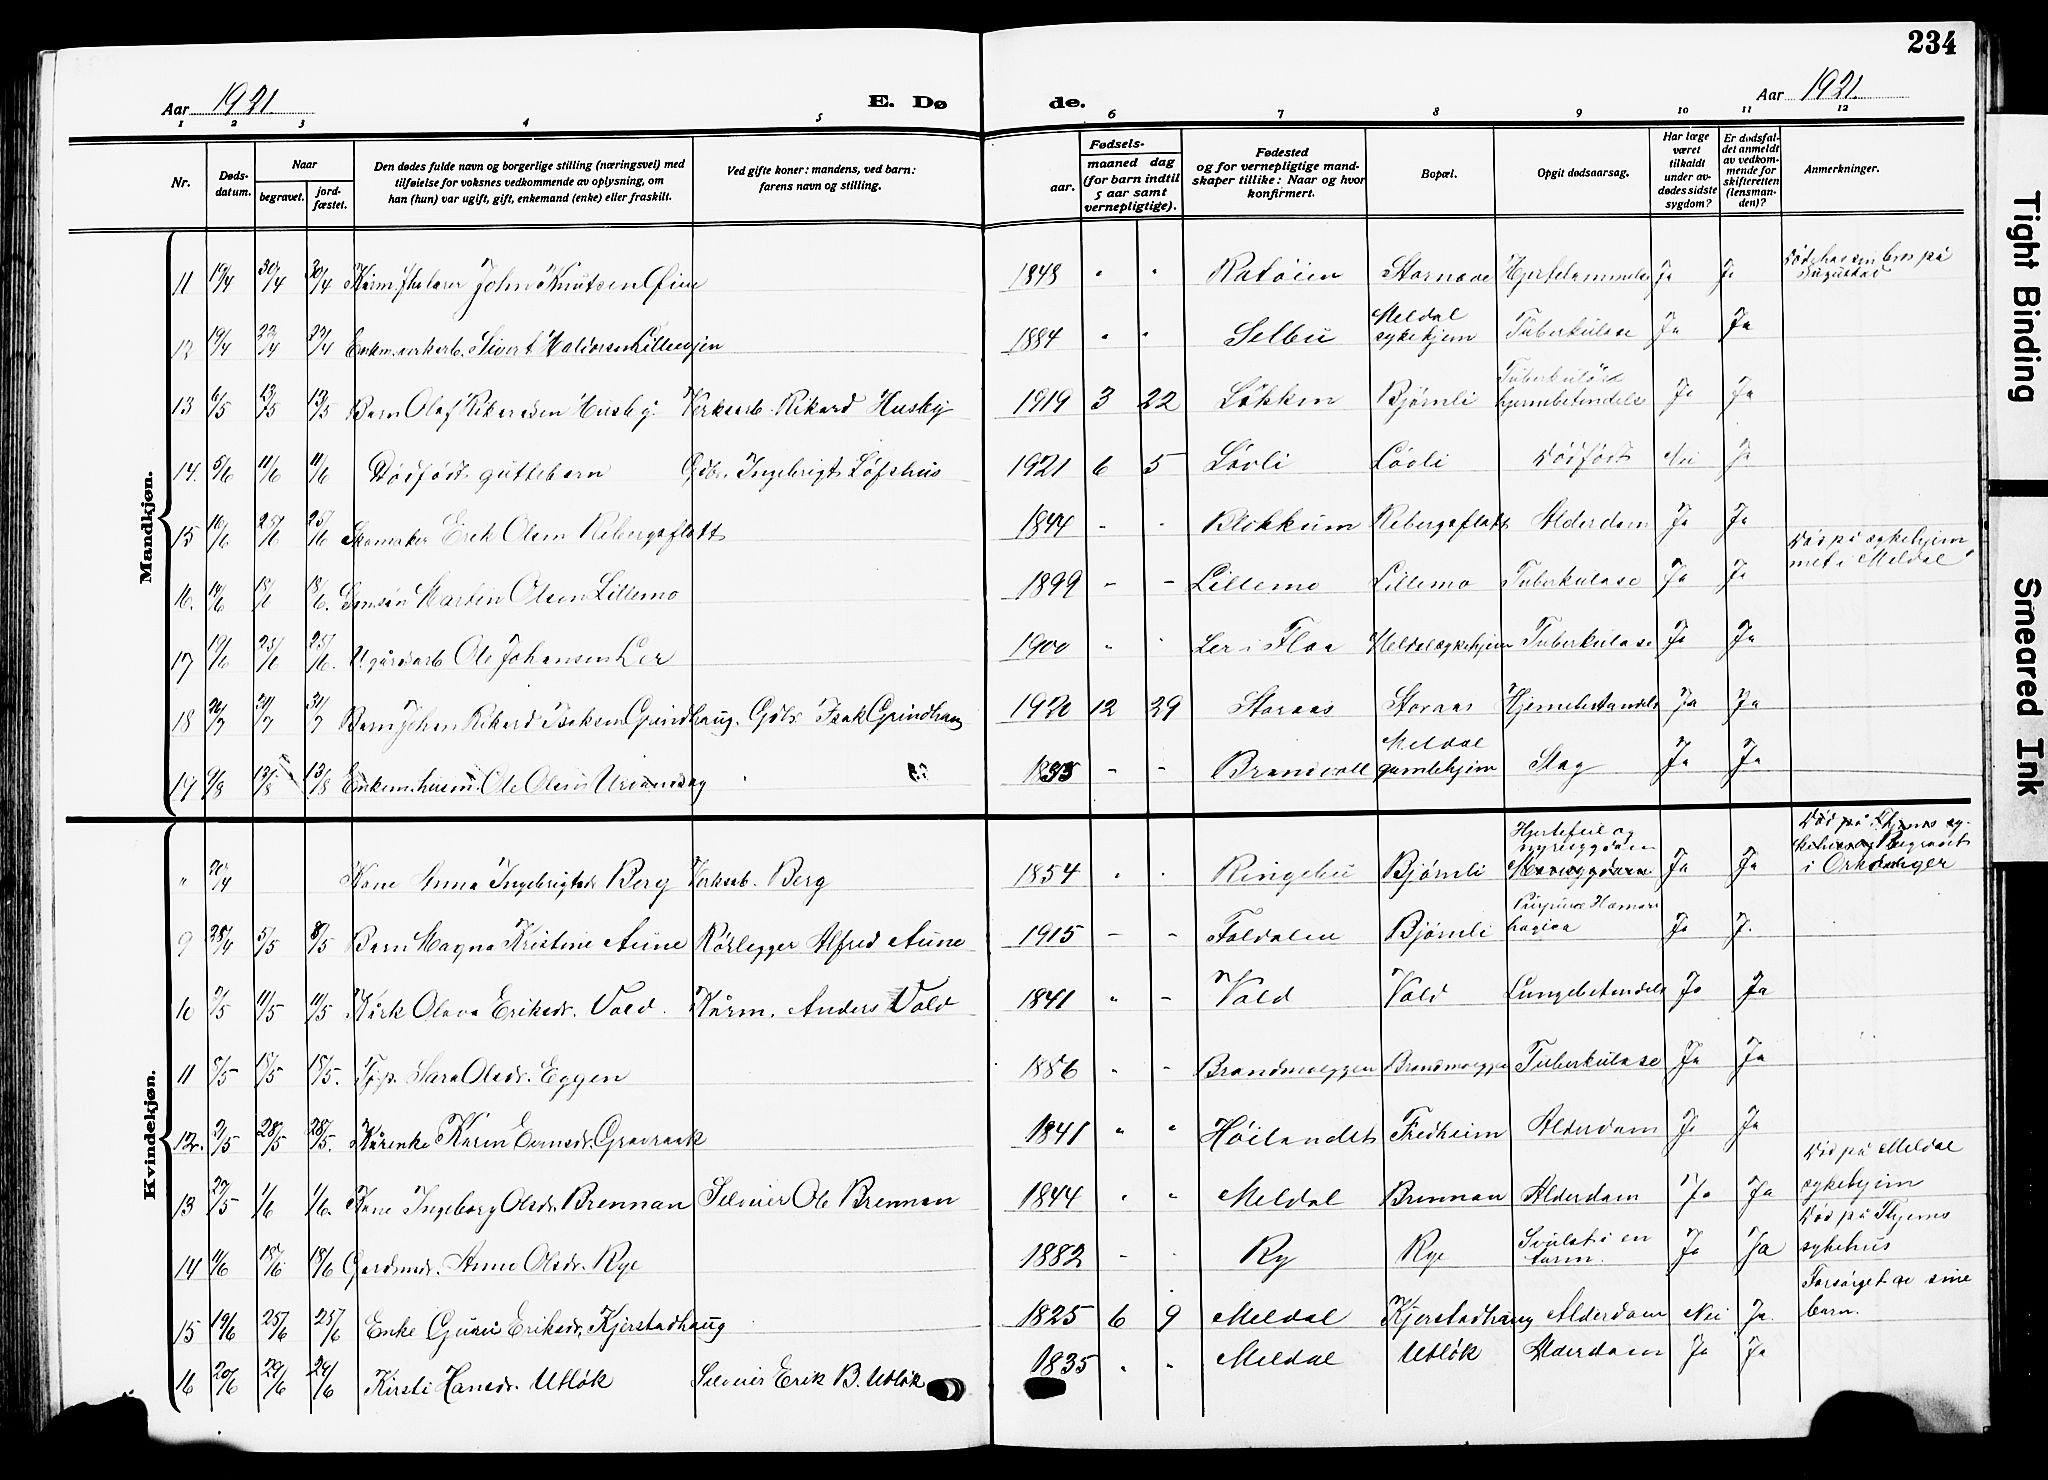 234
Aar 1921. E. Dø de. Aar 1921.
1 2 3 4 5 6 7 8 9 10 11 12
Nr.
Døds-
datum.
Naar
begravet.
jord-
fæstet.
Den dødes fulde navn og borgerlige stilling (næringsvei) med
tilføielse for voksnes vedkommende av oplysning, om
han (hun) var ugift, gift, enkemand (enke) eller fraskilt.
Ved gifte koner: mandens, ved barn:
farens navn og stilling.
Fødsels-
aar.
maaned dag
(for barn indtil
5 aar samt
vernepligtige).
Fødested
og for vernepligtige mand-
skaper tillike: Naar og hvor
konfirmert.
Bopæl.
Opgit dødsaarsag.
Har læge
været
tilkaldt
under av-
dødes sidste
sygdom?
Er dødsfal-
det anmeldt
av vedkom-
mende for
skifteretten
(lensman-
den)?
Anmerkninger.
Mandkjøn.
11 19/4 30/4 30/4 John Knutsen Øien 1848 " " Ratøien Ja Ja
12 19/4 23/4 23/4 Sivert 1884 " " Selbu Meldal sykehjem Tuberkulose Ja Ja
13 6/5 13/5 13/5 Barn Olaf Rikardsen Husby. Verksarb. Rikard Husby 1919 3 22 Løkken Bjørnli Tuberkuløs hjernebetendelse Ja Ja
14. 5/6 11/6 11/6 Dødfødt guttebarn Gdbr. Ingebrigt Løfshus 1921 6 5 Løvli Løvli Dødfødt Nei Ja
15 16/6 25/6 25/6 Skomaker Erik Olsen Rebergsflått 1844 - " Blokkum Rebergsflått Alderdom Ja Ja
16. 14/6 18/6 18/6. Martin Olsen Lillemo 1899 - - Lillemo Lillemo Tuberkulose Ja Ja Død på sykehjemmet i Meldal
17 19/6 25/6 25/6. Ole Johansen Ler 1900 " " Ler i Flaa Meldal sykehjem Tuberkulose Ja Ja
18 Barn Johan Rikard Isaksen Grindhaug. Gdbr. Isak Grindhaug 1920 12 29 Storaas Storaas Hjernebetendelse Ja Ja
19 9/8 13/8 13/8 Ole Olsen - - Brandvoll Meldal gamlehjem Slag Ja Ja
Kvindekjøn.
" 20/4 Kone Anna Ingebrigtsdr Berg Verksarb. Berg 1854 " " Ringebu Bjørnli Hjertefeil og nyresygdom Ja Ja Død på Thjems sykehus og Begravet i Orkanger
9 28/4 5/5 8/5 Barn Magna Kristine Aune Rørlegger Alfred Aune 1915 - - Foldalen Bjørnli Ja J.
10 7/5 11/5 11/5 Kårk Olava Eriksdr. Vold. Kårm. Anders Vold 1841 " - Vold Vold Lungebetendelse Ja Ja
11 18/5 18/5. Sara Olsdr. Eggen 1886 " - Brandmoeggen Brandmoeggen Tuberkulose Ja Ja
12. 2/5 28/5 28/5. Kårenke Karen 1841 " " Høilandet Fredheim Alderdom Ja Ja
13 27/5 1/6 1/6. Kone Ingeborg Olsdr. Brennan Selveier Ole Brennan 1844 " " Meldal Brennan Alderdom Ja Ja Død på Meldal sykehjem
14 11/6 18/6 18/6 Anne Olsdr. Rye 1882 - - Ry Rye Svulst i en tarm. Ja Ja Død på Thjems sykehus
15 19/6 25/6 25/6 Enke Guri Eriksdr. Kjerstadhaug 1825 6 9 Meldal Kjerstadhaug Alderdom Nei Ja. Forsørget av sine barn.
16 20/6 29/6 29/6 Kirsti Hansdr. Utløk Selveier Erik B. Utløk 1835 " " Meldal Utløk Alderdom Ja Ja
Tight Binding
Smeared Ink